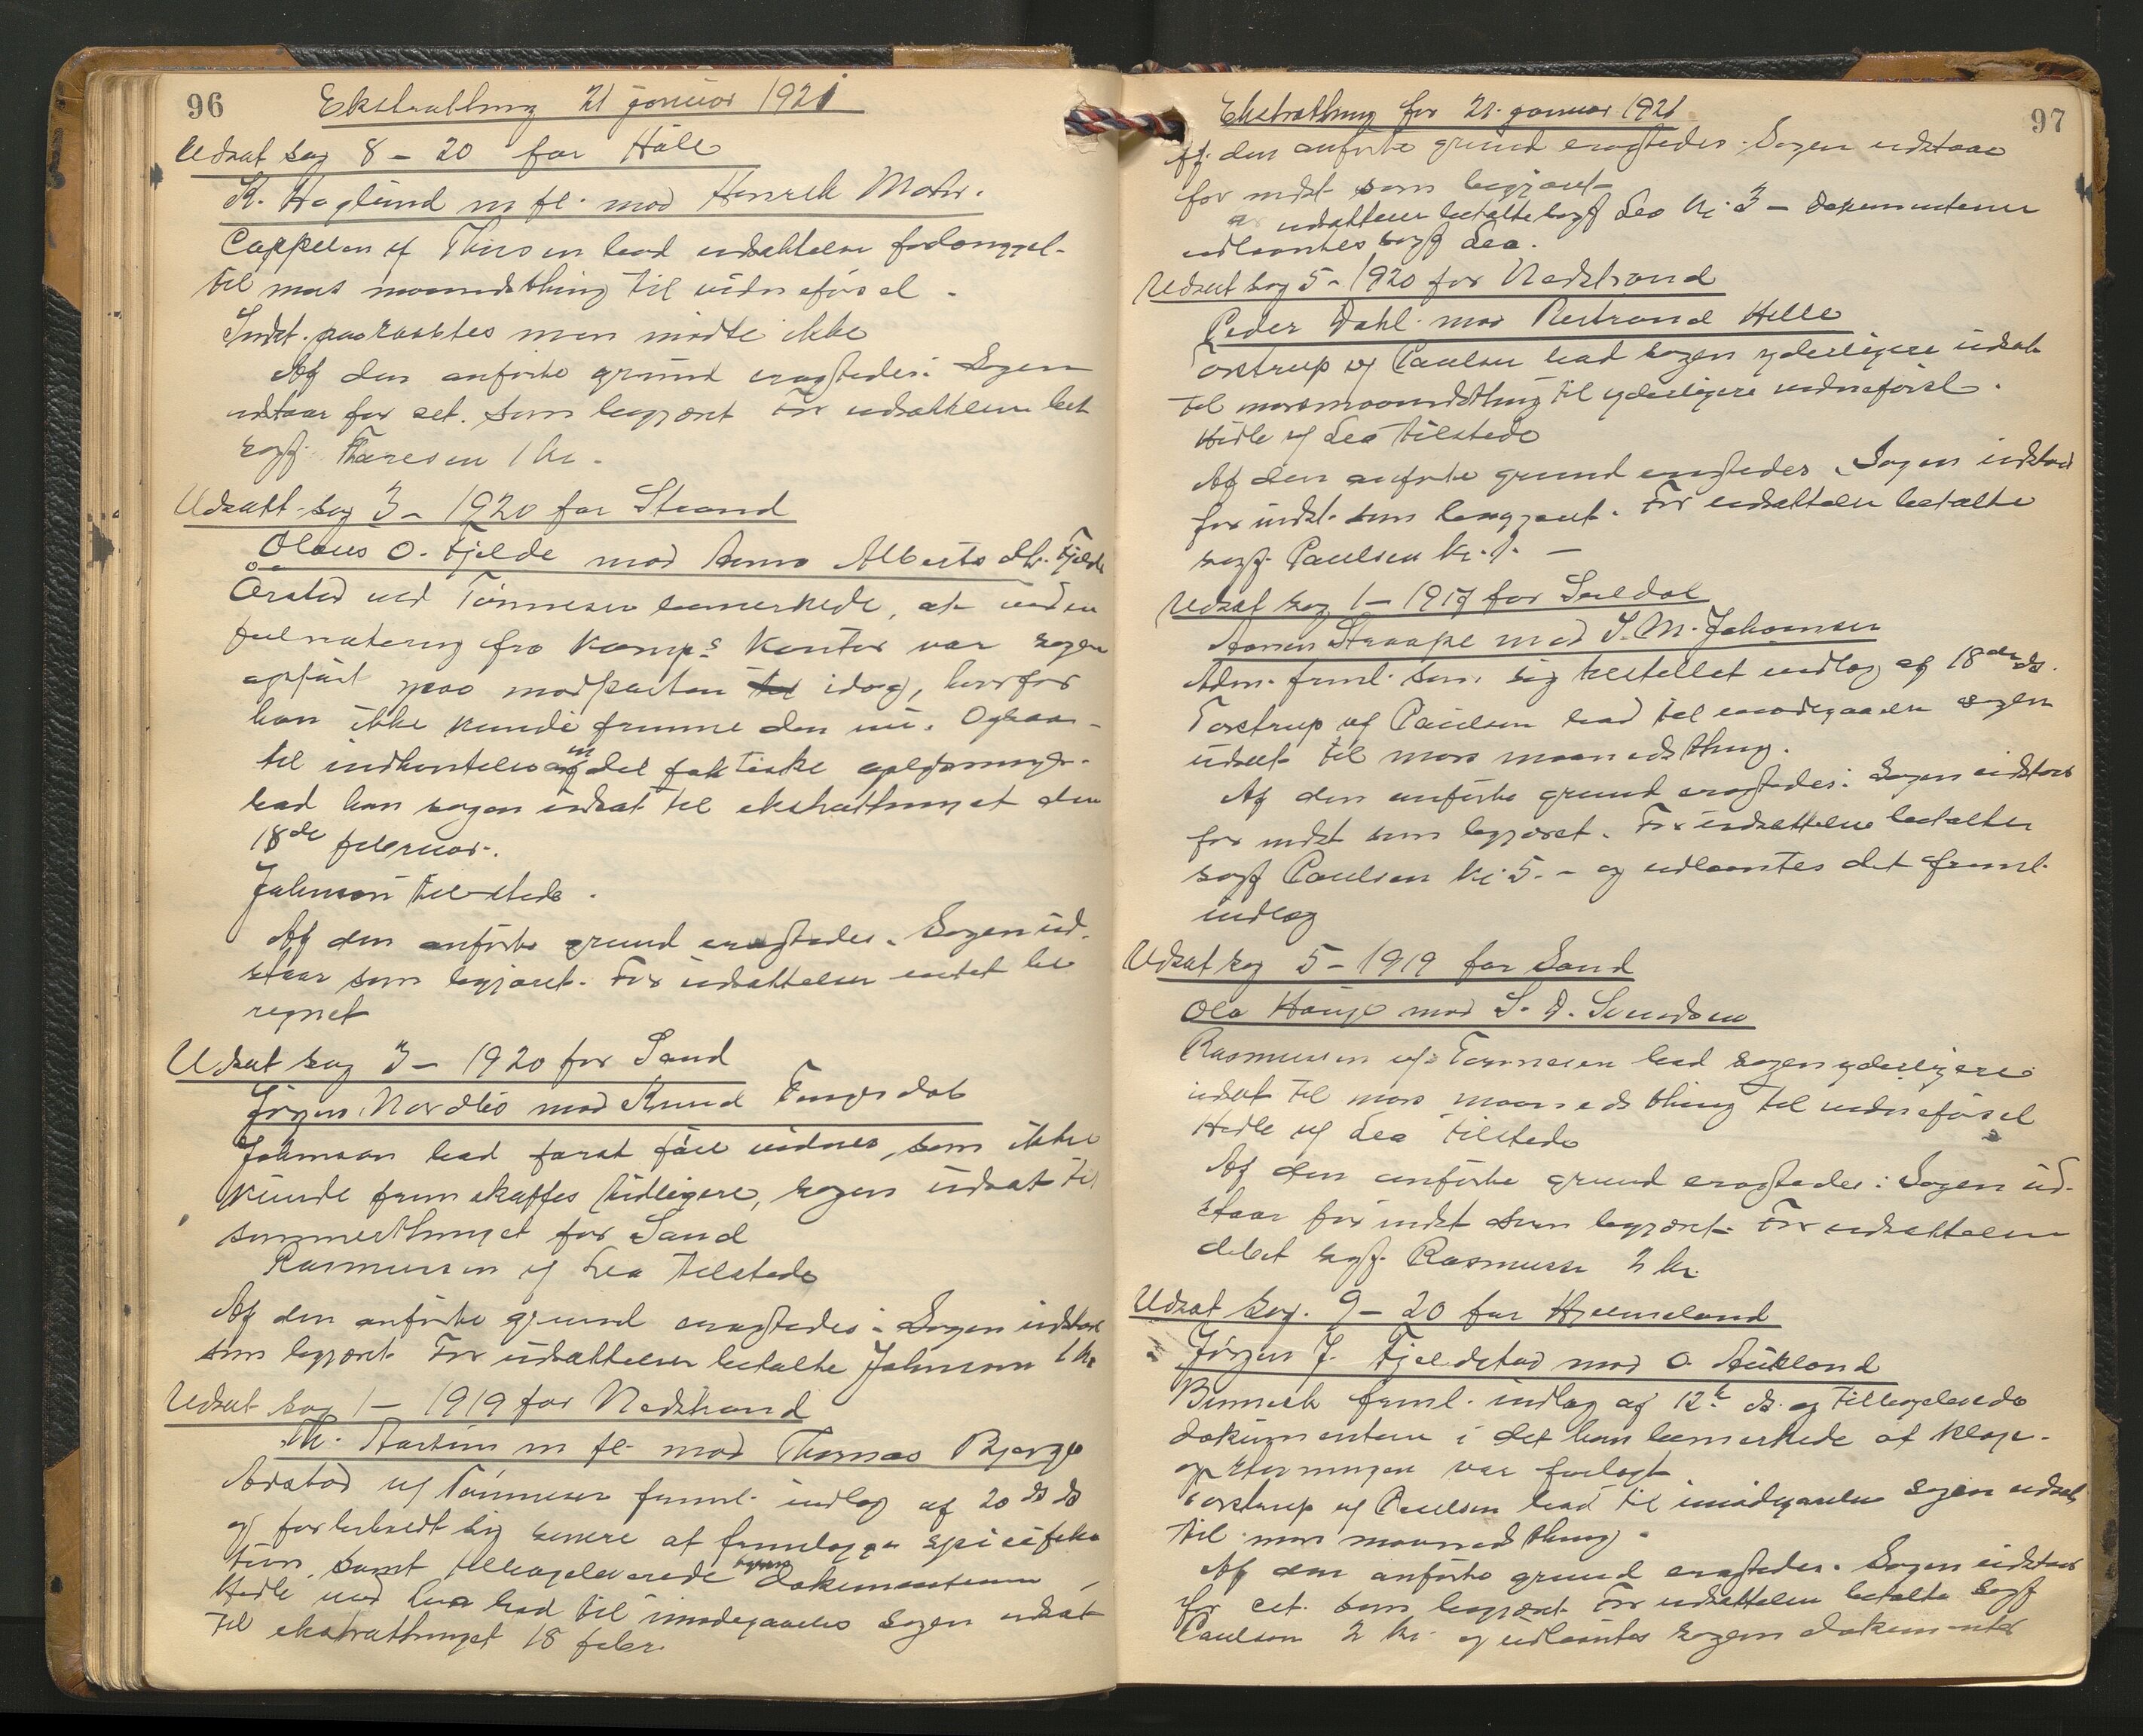 96
Ekstratthing 21 januar 1921
Udsat sag 8 - 20 for Håle
K. Haglund m fl. mod Henrik
Cappelen v/ Thiesen bad udsættelse forlænget
til mars maanedsthing til vidneførsel.
Indst. paaraabtes men mødte ikke
Af den anførte grund eragtedes: Sagen
udstaar for cit. som begjæret For udsættelsen bet
sagf. Thiesen 1 kr.
Udsatt sag 3 - 1920 for Strand
Olaus O. Fjelde mod Anna Alberts dtr. Fjelde
Ørstad ved Tønnesen bemerkede, at ved en
feilnotering fra Kamps kontor var sagen
opført paa modparten idag, hvorfor
han ikke kunde fremme den nu. Ogsaa
til indhentelse af en del faktiske oplysninger
bad han sagen udsat til ekstratthinget den
18de februar.
Johnson tilstede.
Af den anførte grund eragtedes. Sagen ud-
staar som begjæret. For udsættelsen intet be
regnet
Udsat sag 3 - 1920 for Sand
Jørgen Nordbø mod Knud Tengesdal
Johnson bad først før vidner, som ikke
kunde fremskaffes tidligere, sagen udsat til
sommerthinget for Sand
Rasmussen v/ Lea tilstede
Af den anførte grund eragtedes: Sagen udstaar
som begjæret For udsættelsen betalte Johnson 1 kr
Udsat sag 1 - 1919 for Nedstrand
Th. m fl. mod Thomas Bjerge
v/ Tønnesen freml. indlæg af 20 ds ds
og forbeholdt sig senere at fremlægge specifika
tion samt tilbageleverede dokumenterne
Helle ved Lea bad til imødegaaelse sagen udsat
til ekstratthinget 18 febr.
97
Ekstratthing for 21. januar 1921
Af den anførte grund eragtedes. Sagen udstaar
for indst som begjæret
For udsættelsen betalte sagf Lea kr. 3 - Dokumenterne
udlaantes sagf Lea.
Udsat sag 5 - 1920 for Nedstrand
Peder Dahl mod Helle
Torstrup v/ Paulsen bad sagen yderligere udsat
til marsmaanedsthing til yderligere vidneførsel.
Helle v/ Lea tilstede
Af den anførte grund eragtedes. Sagen udstaar
for indst. som begjæret. For udsættelsen betalte
sagf. Paulsen kr. 1. -
Udsat sag 1 - 1917 for Suldal
Straape mod S. M. Johansen
Adm. freml. som sig bestillet indlæg af 18de ds.
Torstrup v/ Paulsen bad til imødegaaelse sagen
udsat til mars maanedsthing.
Af den anførte grund eragtedes: Sagen udstaar
for indst som begjæret. For udsættelsen betalte
sagf Paulsen kr. 5. - og udlaantes det freml.
indlæg
Udsat sag 5 - 1919 for Sand
Ola Hauge mod S. A. Svendsen
Rasmussen v/ Tønnesen bad sagen yderligere
udsat til mars maanedsthing til vidneførsel
Helle v/ Lea tilstede
Af den anførte grund eragtedes: Sagen ud-
staar for indst som begjæret. For udsættelsen
debet sagf. Rasmussen 2 kr.
Udsat Sag. 9 - 20 for Hjelmeland
Jørgen J. Fjeldstad mod O. Aukland
freml. indlæg af 12te ds. og tilbageleverede
dokumenterne i det han bemerkede at klage-
opsætningen var forlagt
Torstrup v/ Paulsen bad til imødegaaelse sagen udsat
til mars maanedsthing.
Af den anførte grund eragtedes. Sagen udstaar
for cit. som begjæret For udsættelsen betalte sagf
Paulsen 2 kr. og udlaantes sagens dokumenter